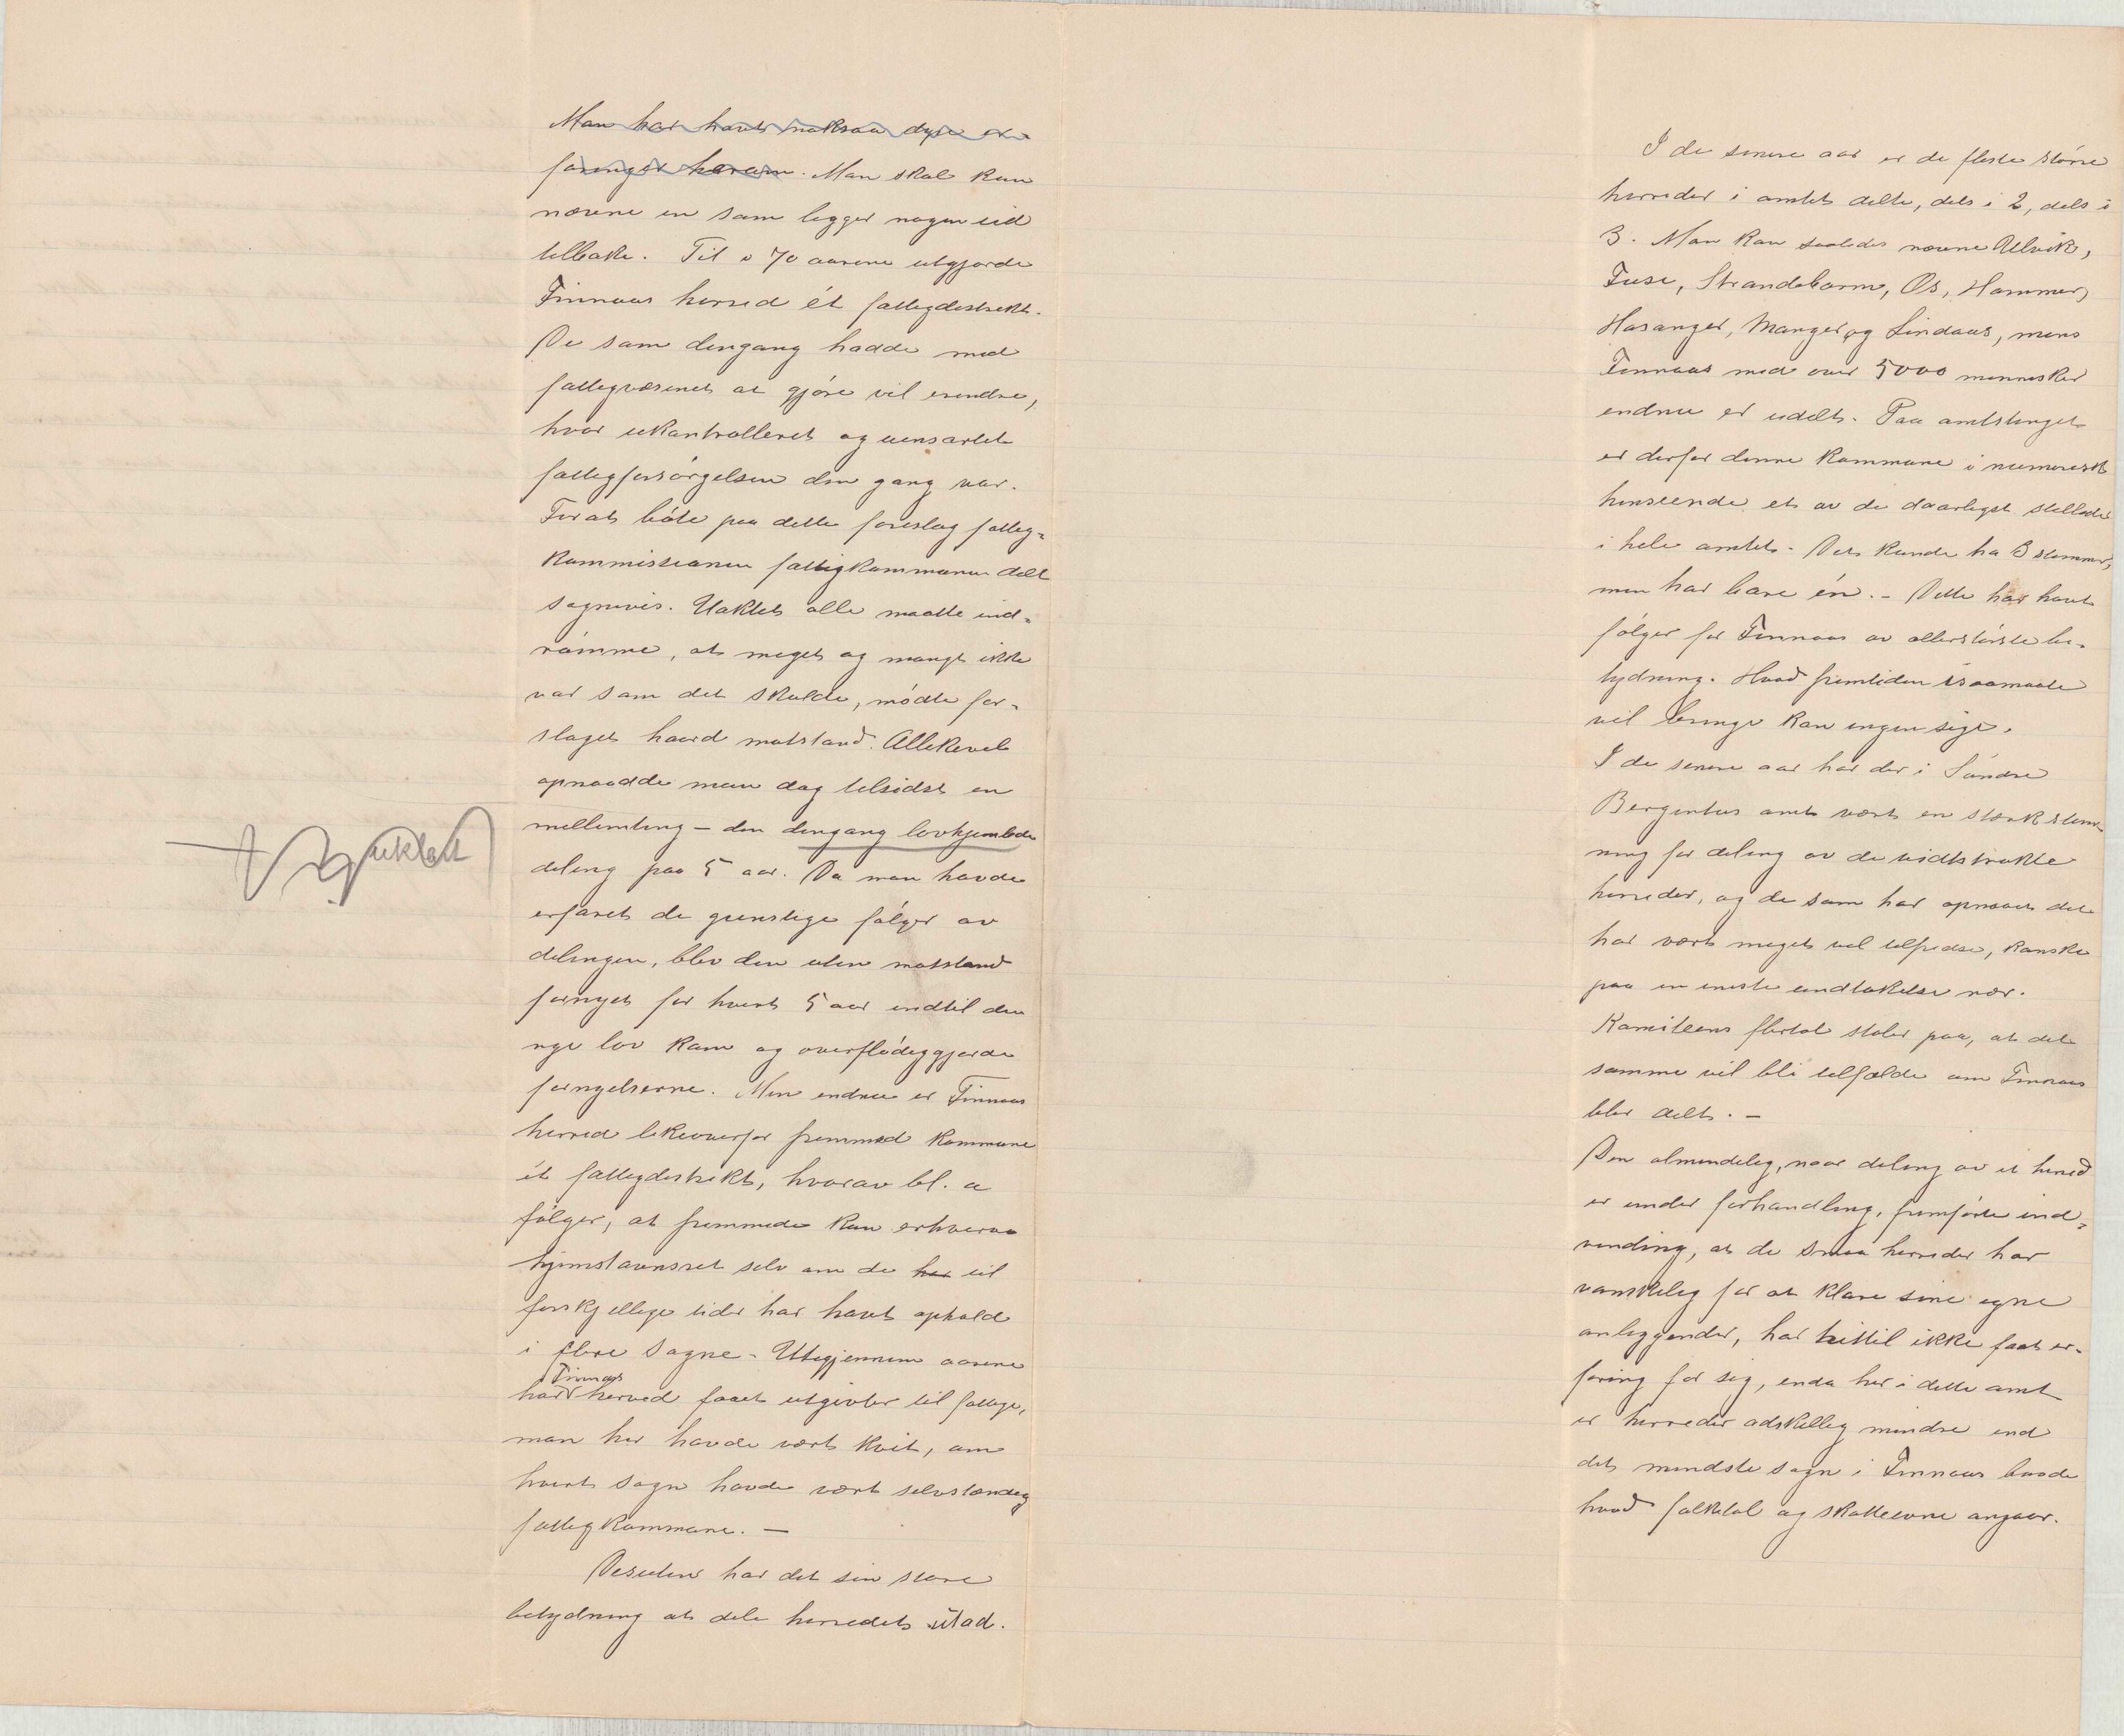 Man har havt noksaa dyre er-
faringer herom. Man skal kun
nævne en som ligger nogen tid
tilbake. Til i 70 aarene utgjorde
Finnaas herred ét fattigdistrikt.
De som dengang hadde med
fattigvæsenet at gjøre vil erindre,
hvor ukontrolleret og uensartet
fattigforsørgelsen den gang var.
For at bóte paa dette foreslog fattig=
kommissionen fattigkommunen delt
sognevis. Uaktet alle maatte ind=
rømme, at meget og mangt ikke
var som det skulde, mødte for-
slaget haard motstand. Allikevel
opnaadde man dog tilsidst en
mellemting — den dengang lovhjemlede
deling paa 5 aar. Da man havde
erfaret de gunstige følger av
delingen, blev den uten motstand
fornyet for hvert 5 aar indtil den
nye lov kom og overflødiggjorde
fornyelserne. Men endnu er Finnaas
herred likeoverfor fremmed kommune
ét fattigdistrikt, hvorav bl. a
følger, at fremmede kan erhverve
hjemstavnsret selv om de har til
forskjellige tider har havt ophold
i flere sogne. Utigjennem aarene
har Finnaas herred faaet utgivter til fattige,
man her havde vært kvit, om
hvert sogn havde vært selvstændig
fattigkommune. —
Desuten har det sin store
betydning at dele herredet utad.
I de senere aar er de fleste større
herreder i amtet delte, dels i 2, dels i
3. Man kan saaledes nævne Ulvik,
Fuse, Strandebarm, Os, Hammer,
Hosanger, Manger og Lindaas, mens
Finnaas med over 5000 mennesker
endnu er udelt. Paa amtstinget
er derfor denne kommune i numerisk
henseende et av de daarligst stillede
i hele amtet. Det kunde ha 3 stemmer,
men har bare én. – Dette har havt
følger for Finnaas av allerstørste be-
tydning. Hvad fremtiden isaamaate
vil bringe kan ingen sige.
I de senere aar har der i Søndre
Bergenhus amt vært en stærk stem
ning for deling av de vidtstrakte
herreder, og de som har opnaaet det
har vært meget vel tilfredse, kanske
paa en eneste undtakelse nær.
Komiteens flertal stoler paa, at det
samme vil bli tilfælde om Finnaas
blir delt. —
Den almindelig, naar deling av et herred
er under forhandling, fremførte ind=
vending, at de smaa herreder har
vanskelig for at klare sine egne
anliggender, har hittil ikke faat er-
faring for sig, enda her i dette amt
er herreder adskillig mindre end
det mindste sogn i Finnaas baade
hvad folketal og skatteevne angaar.